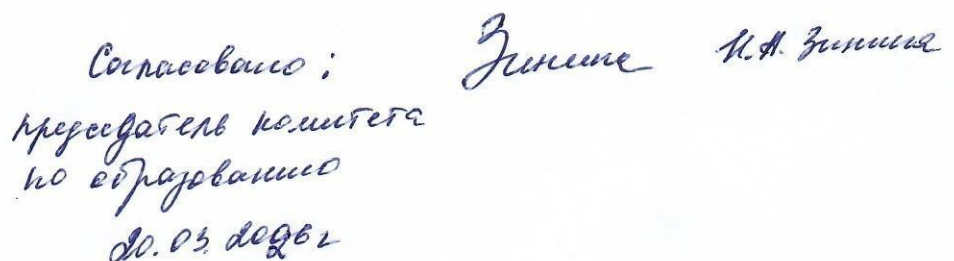 Согласовано: Зинина Н.А. Зинина
председатель комитета
по образованию
20.03.2026 г